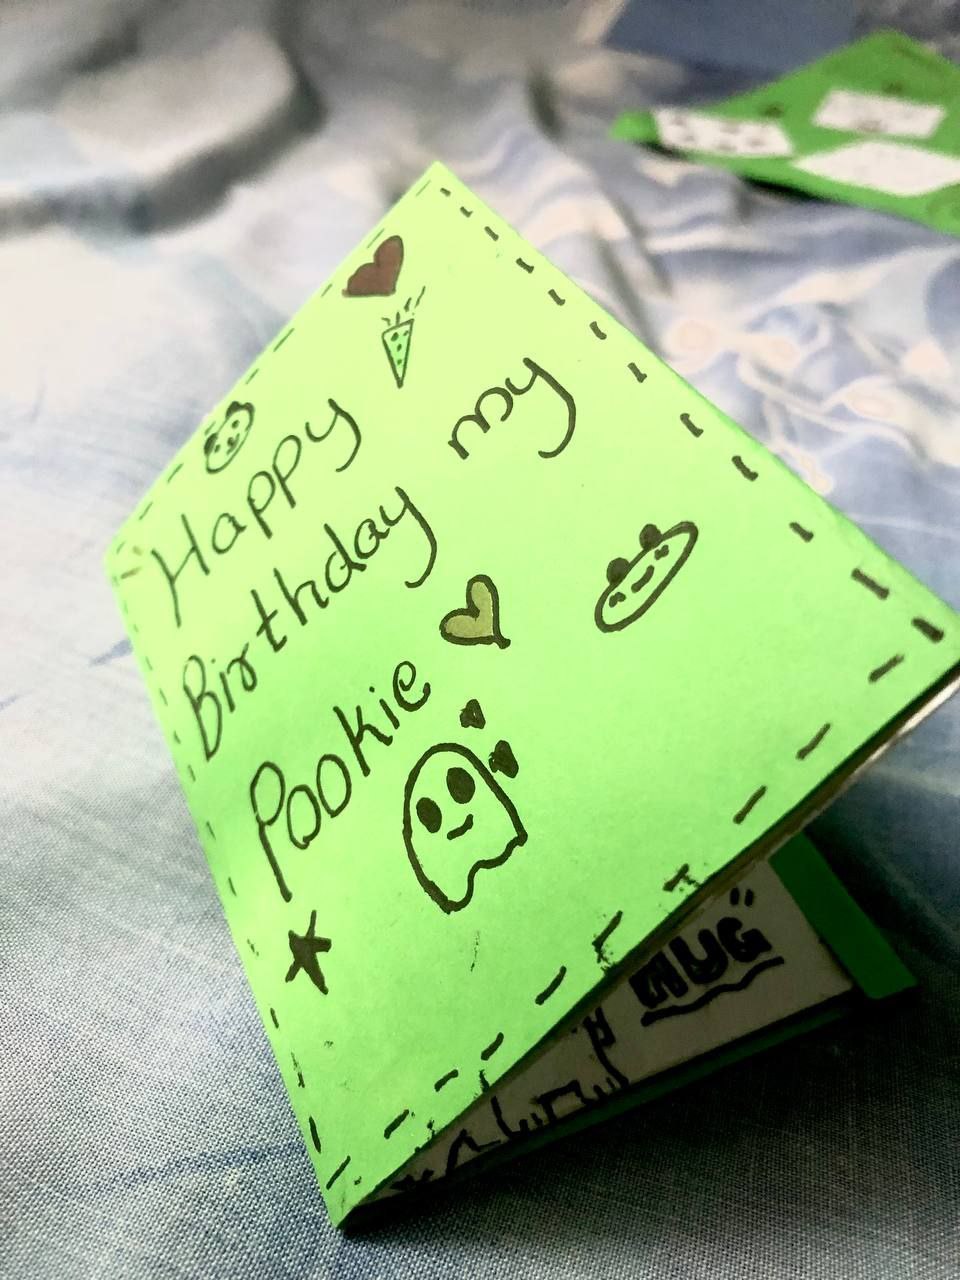 Happy my
Birthday
Pookie
HUG